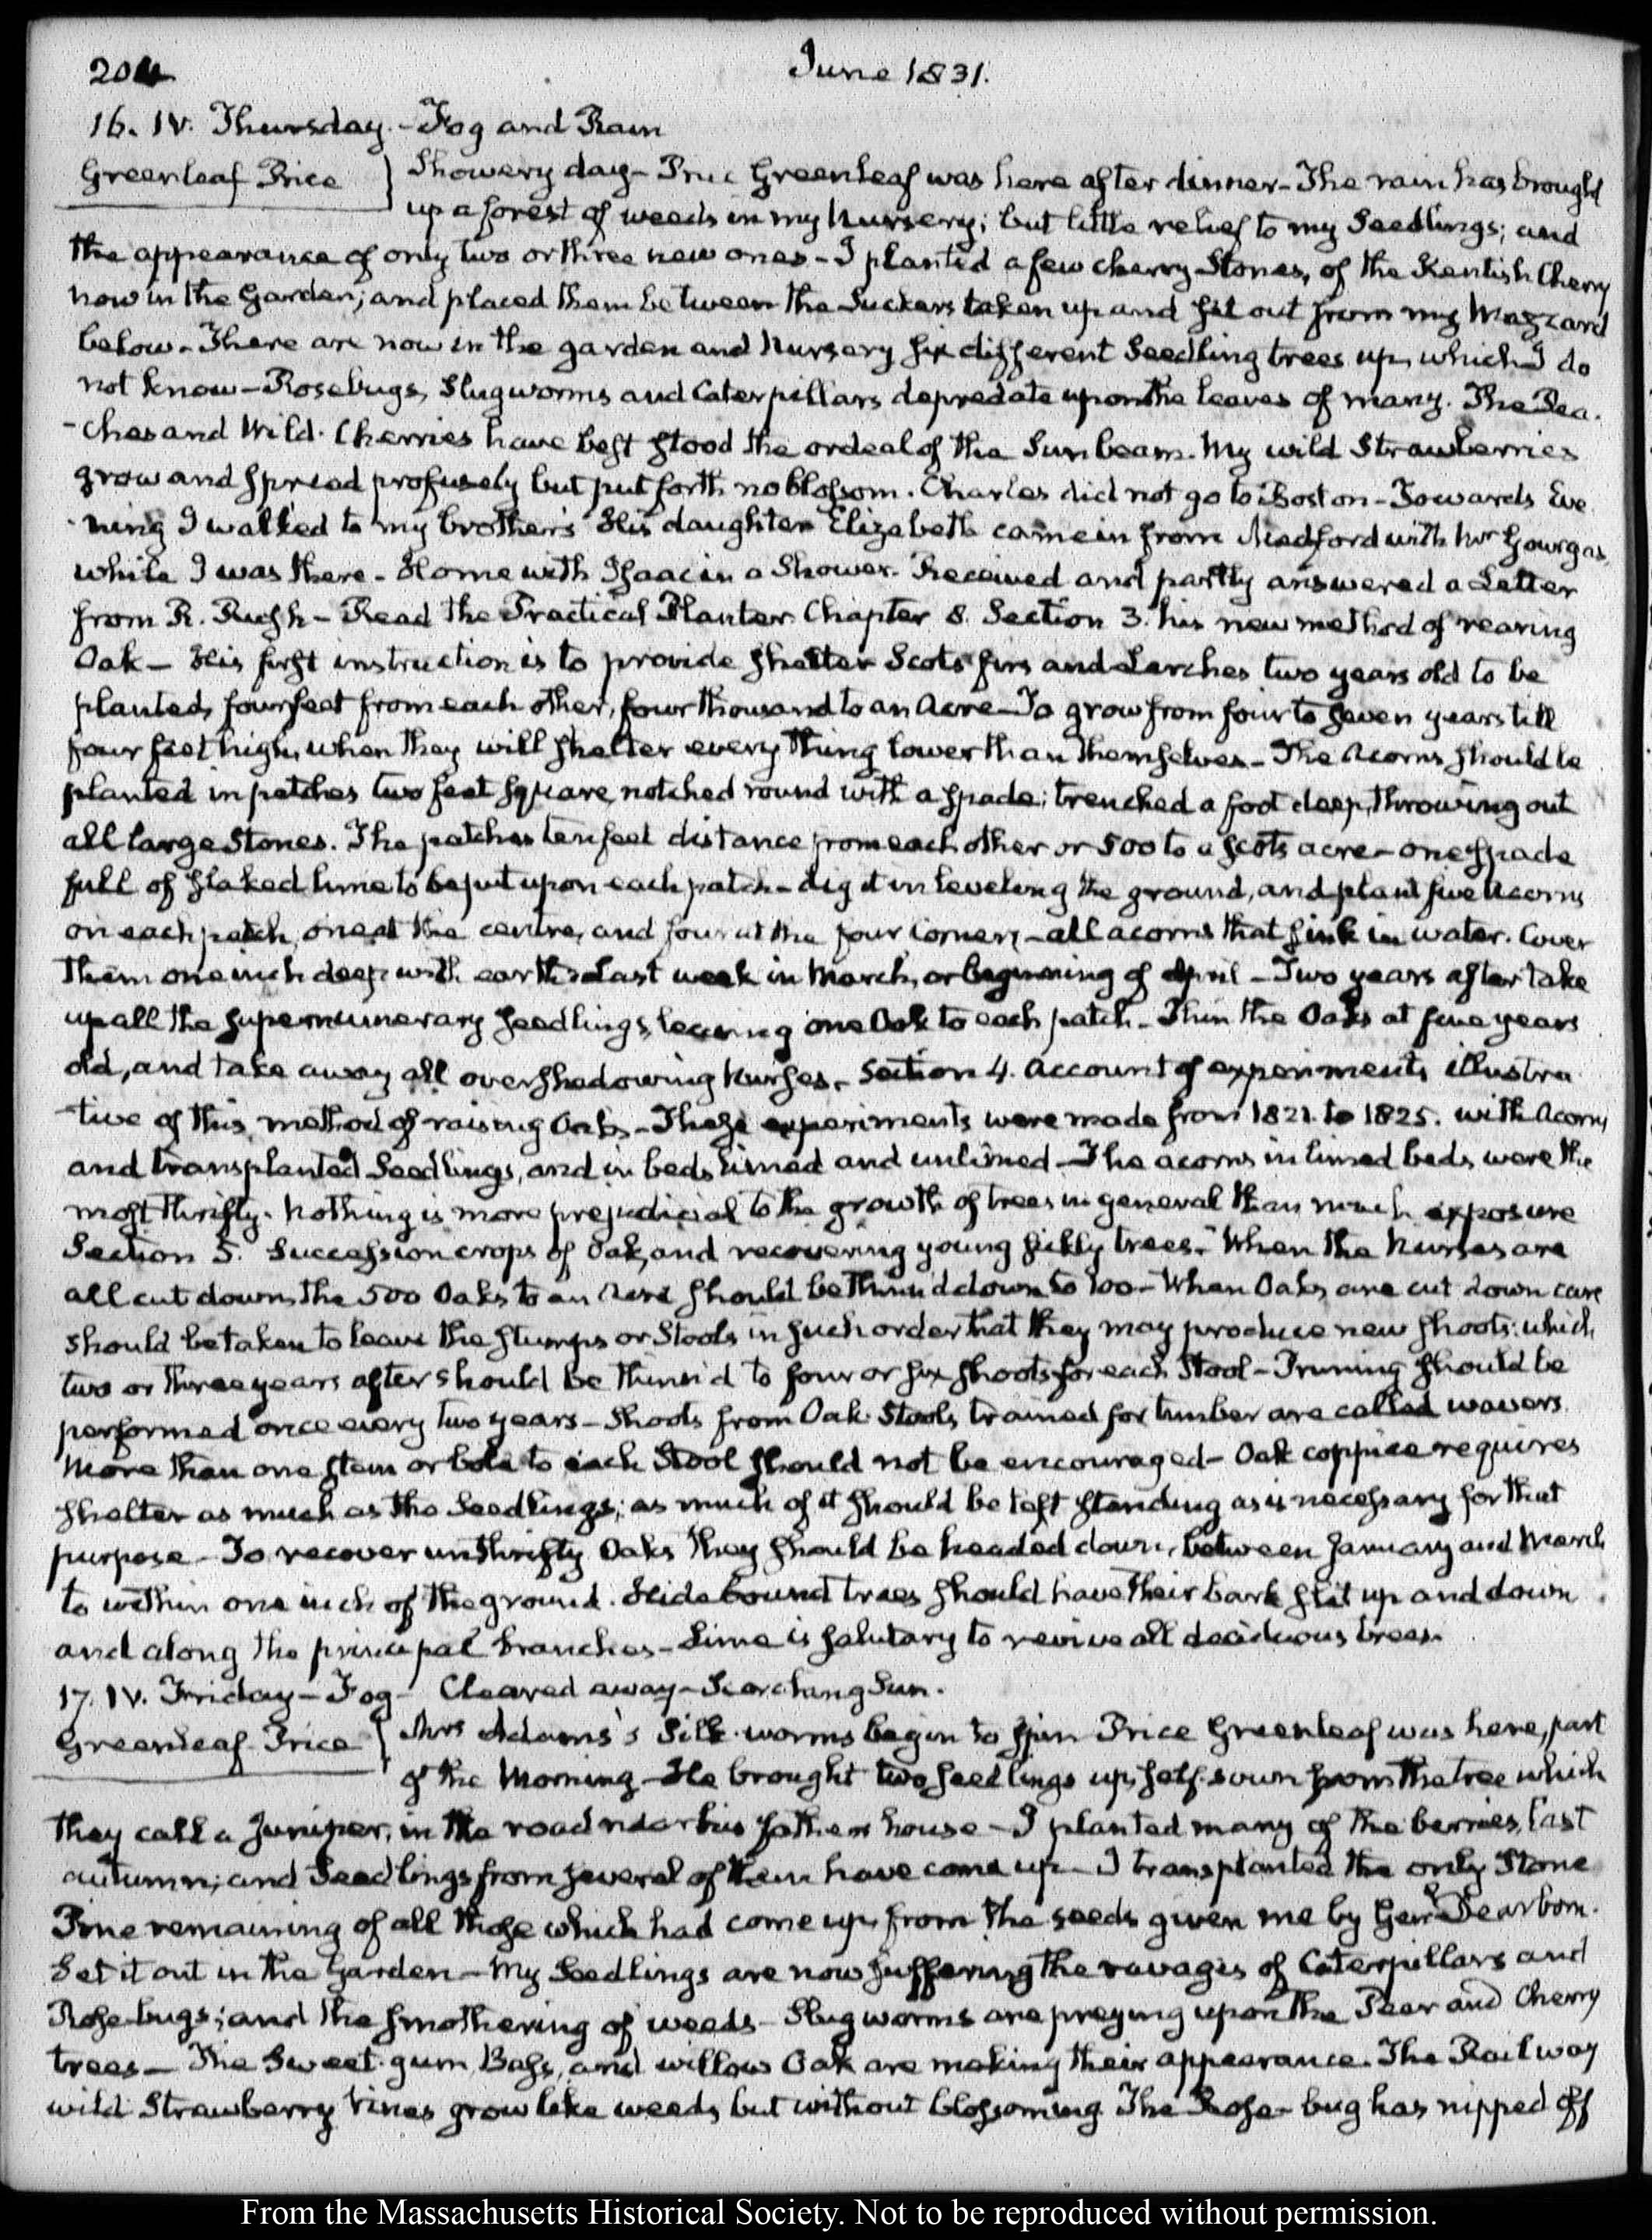 204
June 1831.
16. IV. Thursday. - Fog and Rain
Greenleaf Price } Showery day - Price Greenleaf was here after dinner - The rain has brought
up a forest of weeds in my Nursery; but little relief to my Seedlings; and
the appearance of only two or three new ones - I planted a few cherry Stones, of the Kentish Cherry
now in the Garden; and placed them between the Suckers taken up and set out from my Mazzard
below. There are now in the garden and Nursery six different Seedling trees up, which I do
not know - Rosebugs, Slugworms and Caterpillars depredate upon the leaves of many. The Pea-
-ches and Wild Cherries have best stood the ordeal of the Sunbeam. My wild Strawberries
grow and spread profusely but put forth no blossom. Charles did not go to Boston - Towards Eve
-ning I walked to my brother's His daughter Elizabeth came in from Medford with Mr Gourgas,
while I was there - Home with Isaac in a Shower. Received and partly answered a Letter
from R. Rush - Read the Practical Planter Chapter 8. Section 3. his new method of rearing
Oak - His first instruction is to provide shelter Scots firs and Larches two years old to be
planted, four feet from each other, four thousand to an Acre - To grow from four to seven years till
four feet high, when they will shelter every thing lower than themselves - The Acorns should be
planted in patches two feet square, notched round with a spade; trenched a foot deep, throwing out
all large Stones. The patches ten feet distance from each other or 500 to a Scots acre - one spade
full of slaked lime to be put upon each patch - dig it in leveling the ground, and plant five Acorns
on each patch, one at the centre, and four at the four corners - all acorns that sink in water. Cover
them one inch deep with earth Last week in March, or beginning of April - Two years after take
up all the supernumerary seedlings, leaving one Oak to each patch - Thin the Oaks at five years
old, and take away all overshadowing Nurses. Section 4. Account of experiments illustra
-tive of this method of raising Oaks - These experiments were made from 1821. to 1825. with Acorns
and transplanted Seedlings, and in beds limed and unlimed - The acorns in limed beds were the
most thrifty. Nothing is more prejudicial to the growth of trees in general than much exposure
Section 5. Succession crops of Oak, and recovering young sickly trees. When the Nurses are
all cut down, the 500 Oaks to an Acre should be thinn'd down to 100 - When Oaks are cut down care
should be taken to leave the stumps or Stools in such order that they may produce new shoots: which
two or three years after should be thinn'd to four or six shoots for each Stool - Pruning should be
performed once every two years - Shoots from Oak Stools, trained for timber are called wavers.
More than one stem or bole to each Stool should not be encouraged - Oak coppice requires
shelter as much as the Seedlings; as much of it should be left standing as is necessary for that
purpose - To recover unthrifty Oaks they should be headed down, between January and March
to within one inch of the ground. Hidebound trees should have their bark slit up and down
and along the principal branches - Lime is salutary to revive all deciduous trees.
17. IV. Friday - Fog - Cleared away - Scorching Sun.
Greenleaf Price { Mrs Adams's Silk-worms begin to spin Price Greenleaf was here, part
of the Morning - He brought two seedlings up, self-sown from the tree which
they call a Juniper, in the road near his father's house - I planted many of the berries, last
autumn; and Seedlings from several of them have come up - I transplanted the only Stone
Pine remaining of all those which had come up from the seeds given me by Genl Dearborn.
Set it out in the Garden - My Seedlings are now suffering the ravages of Caterpillars and
Rose-bugs; and the smothering of weeds - Slugworms are preying upon the Pear and Cherry
trees - The Sweet-gum, Bass, and willow Oak are making their appearance. The Railway
wild Strawberry Vines grow like weeds, but without blossoming The Rose-bug has nipped off
From the Massachusetts Historical Society. Not to be reproduced without permission.